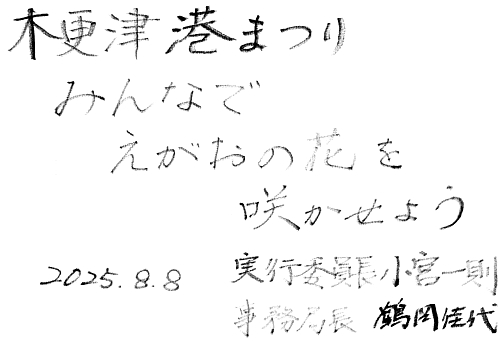 木更津港まつり
みんなで
えがおの花を
咲かせよう
2025.8.8 実行委員長小宮一則
事務局長 鶴岡佳代